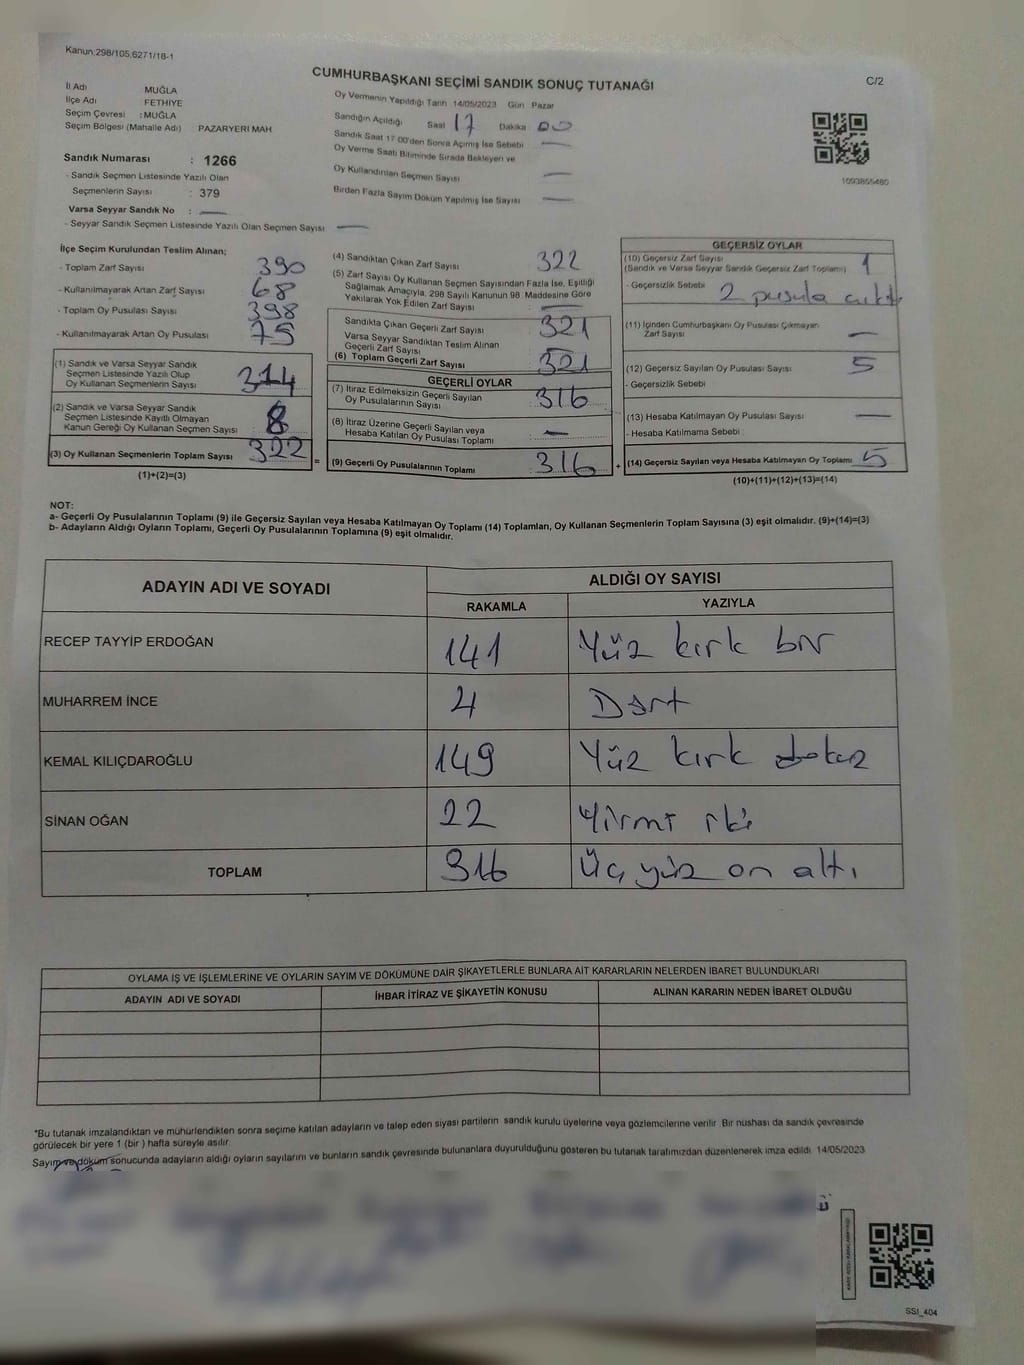 Kanun:298/105,6271/18-1
CUMHURBAŞKANI SEÇİMİ SANDIK SONUÇ TUTANAĞI
C/2
İl Adı MUĞLA
İlçe Adı FETHİYE
Seçim Çevresi :MUĞLA
Seçim Bölgesi (Mahalle Adı) : PAZARYERI MAH
Sandık Numarası : 1266
- Sandık Seçmen Listesinde Yazılı Olan
Seçmenlerin Sayısı : 379
Varsa Seyyar Sandık No : —
- Seyyar Sandık Seçmen Listesinde Yazılı Olan Seçmen Sayısı —
Oy Vermenin Yapıldığı Tarih 14/05/2023 Gün Pazar
Sandığın Açıldığı Saat 17 Dakika 00
Sandık Saat 17 00'den Sonra Açımış İse Sebebi —
Oy Verme Saati Bitiminde Sırada Bekleyen ve
Oy Kullandırılan Seçmen Sayısı —
Birden Fazla Sayım Döküm Yapılmış İse Sayısı —
1093855480
İlçe Seçim Kurulundan Teslim Alınan;
- Toplam Zarf Sayısı 390
- Kullanılmayarak Artan Zarf Sayısı 68
- Toplam Oy Pusulası Sayısı 398
- Kullanılmayarak Artan Oy Pusulası 75
(1) Sandık ve Varsa Seyyar Sandık
Seçmen Listesinde Yazılı Olup
Oy Kullanan Seçmenlerin Sayısı 314
(2) Sandık ve Varsa Seyyar Sandık
Seçmen Listesinde Kayıtlı Olmayan
Kanun Gereği Oy Kullanan Seçmen Sayısı 8
(3) Oy Kullanan Seçmenlerin Toplam Sayısı 322
(1)+(2)=(3)
(4) Sandıktan Çıkan Zarf Sayısı 322
(5) Zarf Sayısı Oy Kullanan Seçmen Sayısından Fazla İse, Eşitliği
Sağlamak Amacıyla, 298 Sayılı Kanunun 98 Maddesine Göre
Yakılarak Yok Edilen Zarf Sayısı —
Sandıkta Çıkan Geçerli Zarf Sayısı 321
Varsa Seyyar Sandıktan Teslim Alınan
Geçerli Zarf Sayısı —
(6) Toplam Geçerli Zarf Sayısı 321
GEÇERLİ OYLAR
(7) İtiraz Edilmeksizin Geçerli Sayılan
Oy Pusulalarının Sayısı 316
(8) İtiraz Üzerine Geçerli Sayılan veya
Hesaba Katılan Oy Pusulası Toplamı —
= (9) Geçerli Oy Pusulalarının Toplamı 316 +
GEÇERSİZ OYLAR
(10) Geçersiz Zarf Sayısı 1
(Sandık ve Varsa Seyyar Sandık Geçersiz Zarf Toplamı)
- Geçersizlik Sebebi 2 pusula çıktı
(11) İçinden Cumhurbaşkanı Oy Pusulası Çıkmayan
Zarf Sayısı —
(12) Geçersiz Sayılan Oy Pusulası Sayısı 5
- Geçersizlik Sebebi
(13) Hesaba Katılmayan Oy Pusulası Sayısı —
- Hesaba Katılmama Sebebi
(14) Geçersiz Sayılan veya Hesaba Katılmayan Oy Toplamı 5
(10)+(11)+(12)+(13)=(14)
NOT:
a- Geçerli Oy Pusulalarının Toplamı (9) ile Geçersiz Sayılan veya Hesaba Katılmayan Oy Toplamı (14) Toplamları, Oy Kullanan Seçmenlerin Toplam Sayısına (3) eşit olmalıdır. (9)+(14)=(3)
b- Adayların Aldığı Oyların Toplamı, Geçerli Oy Pusulalarının Toplamına (9) eşit olmalıdır.
ADAYIN ADI VE SOYADI ALDIĞI OY SAYISI
RAKAMLA YAZIYLA
RECEP TAYYİP ERDOĞAN 141 Yüz kırk bir
MUHARREM İNCE 4 Dört
KEMAL KILIÇDAROĞLU 149 Yüz kırk dokuz
SİNAN OĞAN 22 Yirmi iki
TOPLAM 316 Üç yüz on altı
OYLAMA İŞ VE İŞLEMLERİNE VE OYLARIN SAYIM VE DÖKÜMÜNE DAİR ŞİKAYETLERLE BUNLARA AİT KARARLARIN NELERDEN İBARET BULUNDUKLARI
ADAYIN ADI VE SOYADI İHBAR İTİRAZ VE ŞİKAYETİN KONUSU ALINAN KARARIN NEDEN İBARET OLDUĞU
*Bu tutanak imzalandıktan ve mühürlendikten sonra seçime katılan adayların ve talep eden siyasi partilerin sandık kurulu üyelerine veya gözlemcilerine verilir Bir nüshası da sandık çevresinde
görülecek bir yere 1 (bir ) hafta süreyle asılır.
Sayım ve döküm sonucunda adayların aldığı oyların sayılarını ve bunların sandık çevresinde bulunanlara duyurulduğunu gösteren bu tutanak tarafımızdan düzenlenerek imza edildi 14/05/2023
SSI_404